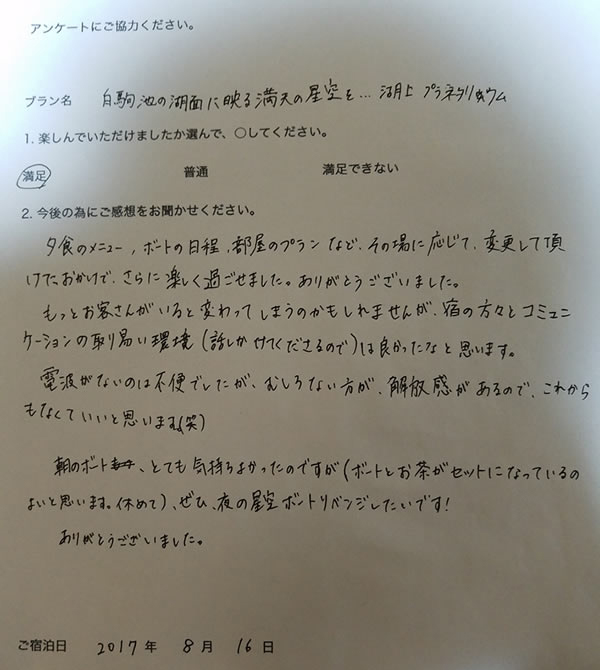 アンケートにご協力ください。
プラン名 白駒池の湖面に映る満天の星空を… 湖上プラネタリュウム
1. 楽しんでいただけましたか選んで、○してください。
満足 普通 満足できない
2. 今後の為にご感想をお聞かせください。
夕食のメニュー, ボートの日程, 部屋のプランなど、その場に応じて、変更して頂
けたおかげで、さらに楽しく過ごせました。ありがとうございました。
もっとお客さんがいると変わってしまうのかもしれませんが、宿の方々とコミュニ
ケーションの取り易い環境(話しかけてくださるので)は良かったなと思います。
電波がないのは不便でしたが、むしろない方が、解放感があるので、これから
もなくていいと思います(笑)
朝のボート、とても気持ちよかったのですが(ボートとお茶がセットになっているの
よいと思います。休めて)、ぜひ、夜の星空ボートリベンジしたいです!
ありがとうございました。
ご宿泊日 2017 年 8 月 16 日